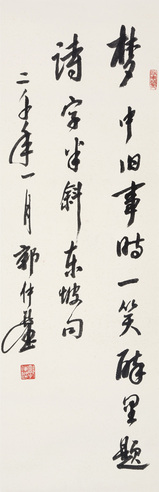 梦中旧事时一笑醉里题
诗字半斜东坡句
二千年一月郭仲选